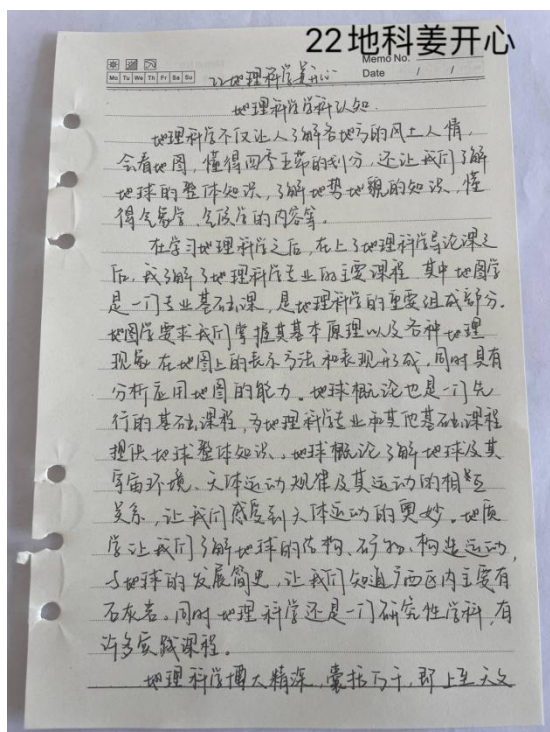 22地科姜开心
Memo No.
Mo Tu We Th Fr Sa Su
Date / /
22地理科学姜开心
地理科学学科认知
地理科学不仅让人了解各地方的风土人情,
会看地图,懂得四季五带的划分,还让我们了解
地球的整体知识,了解地势地貌的知识,懂
得气象学、气候学的内容等。
在学习地理科学之后,在上了地理科学导论课之
后,我了解了地理科学专业的主要课程,其中地图学
是一门专业基础课,是地理科学的重要组成部分。
地图学要求我们掌握其基本原理以及各种地理
现象在地图上的表示方法和表现形式,同时具有
分析应用地图的能力。地球概论也是一门先
行的基础课程,为地理科学专业和其他基础课程
提供地球整体知识。地球概论了解地球及其
宇宙环境、天体运动规律及其运动的相互
关系,让我们感受到天体运动的奥妙。地质
学让我们了解地球的结构、矿物、构造运动,
与地球的发展简史,让我们知道广西区内主要有
石灰岩。同时地理科学还是一门研究性学科,有
许多实践课程。
地理科学博大精深,囊括万千,即上至天文